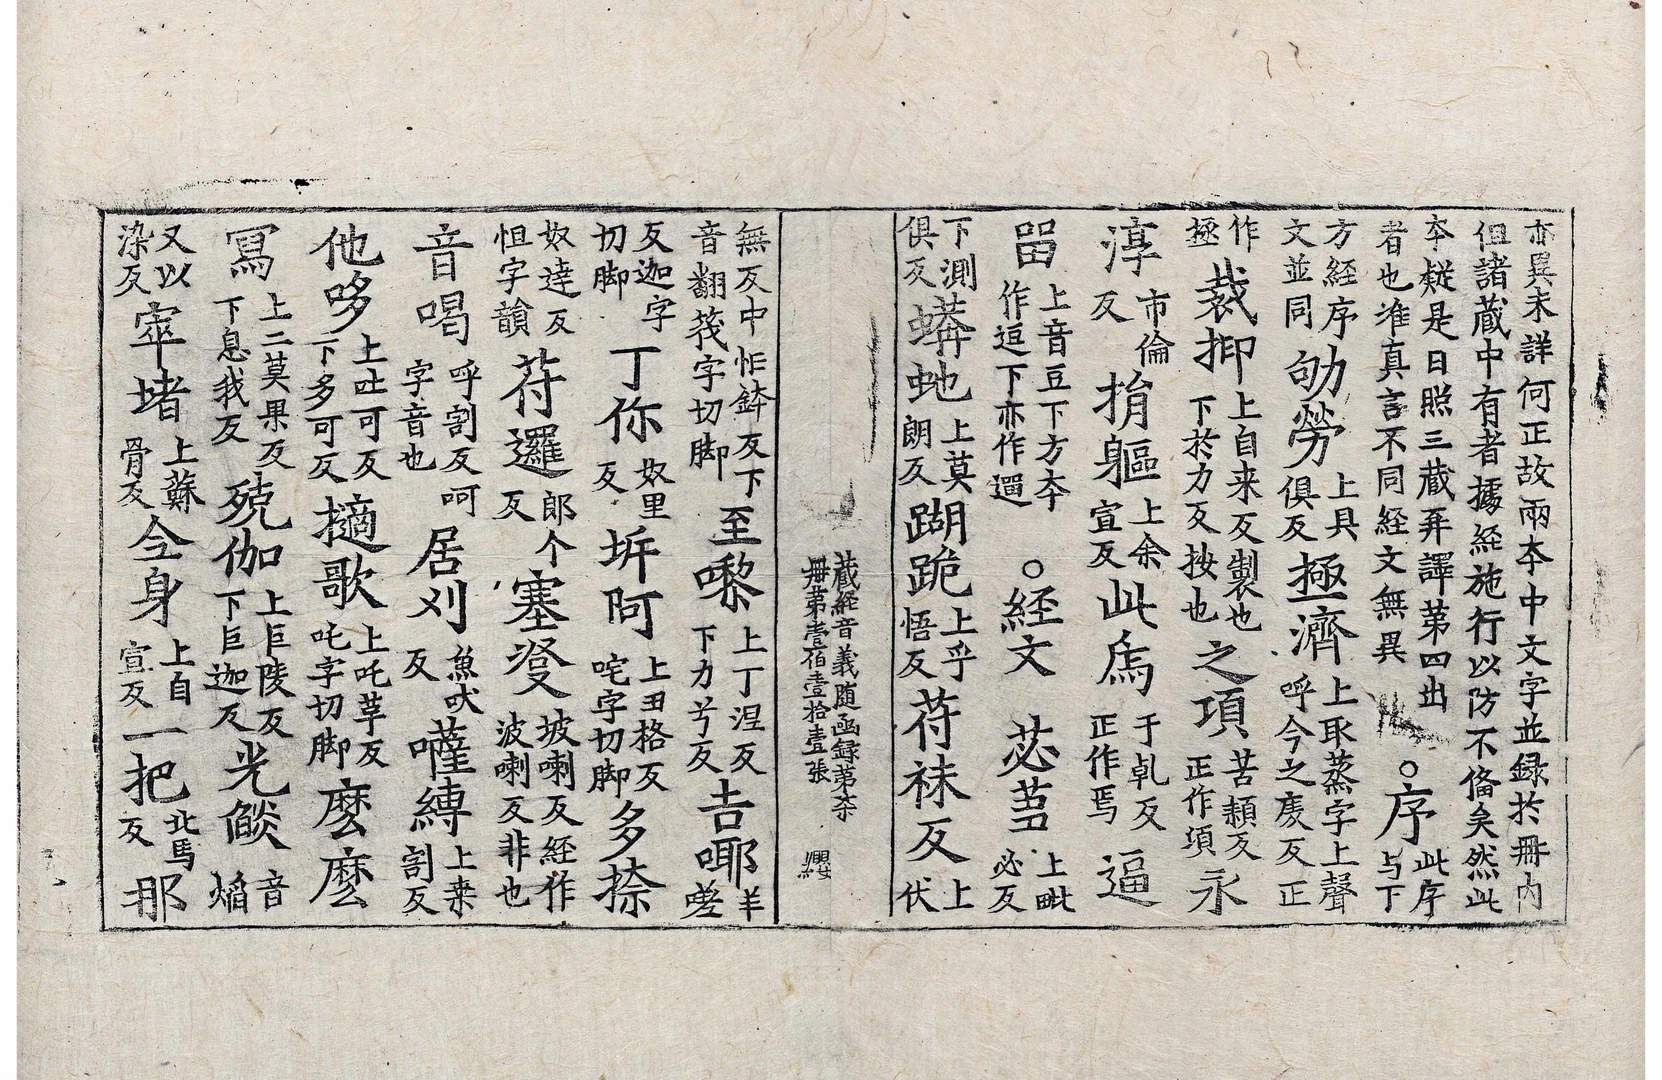 亦異未詳何正故兩夲中文字並録扵冊内
但諸蔵中有者據経施行以防不俻矣然此
夲疑是日照三蔵再譯苐四出
者也准真言不同経文無異
○序此序与下
方経序文並同劬勞上具俱反極濟上取蒸字上聲呼今之䖏反正
作極裁抑上自来反製也下於力反按也之項苦頴反正作項永
淳市倫反捐軀上余宣反此爲于乹反正作焉逼
㽞上音豆下方夲作逗下亦作遛○経文苾蒭上毗必反
下測俱反蟒虵上莫朗反蹦跪上乎悟反苻袜反上伏
蔵経音義随函録苐柒
冊苐壹伯壹拾壹張
纓
無反中怍鉢反下音翻筏字切脚至㗚上丁涅反下力兮反𠮷㖿羊嗟
反迦字切脚丁你奴里反坼阿上丑格反咤字切脚多捺
奴逹反怛字韻苻邏郎个反塞㛐坡喇反経作波喇反非也
音喝呼割反呵字音也居刈魚吠反囉縛上来割反
他哆上吐可反下多可反擿歌上吒革反吒字切脚麽麽
冩上二莫果反下息我反殑伽上巨陵反下巨迦反光㷿音焔
又以染反窣堵上蘇骨反仐身上自宣反一把北馬反那